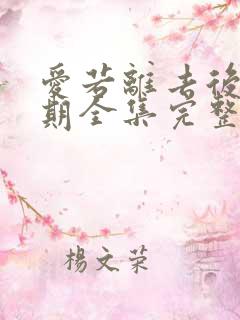 愛若離去後
期全集完整
楊文荣